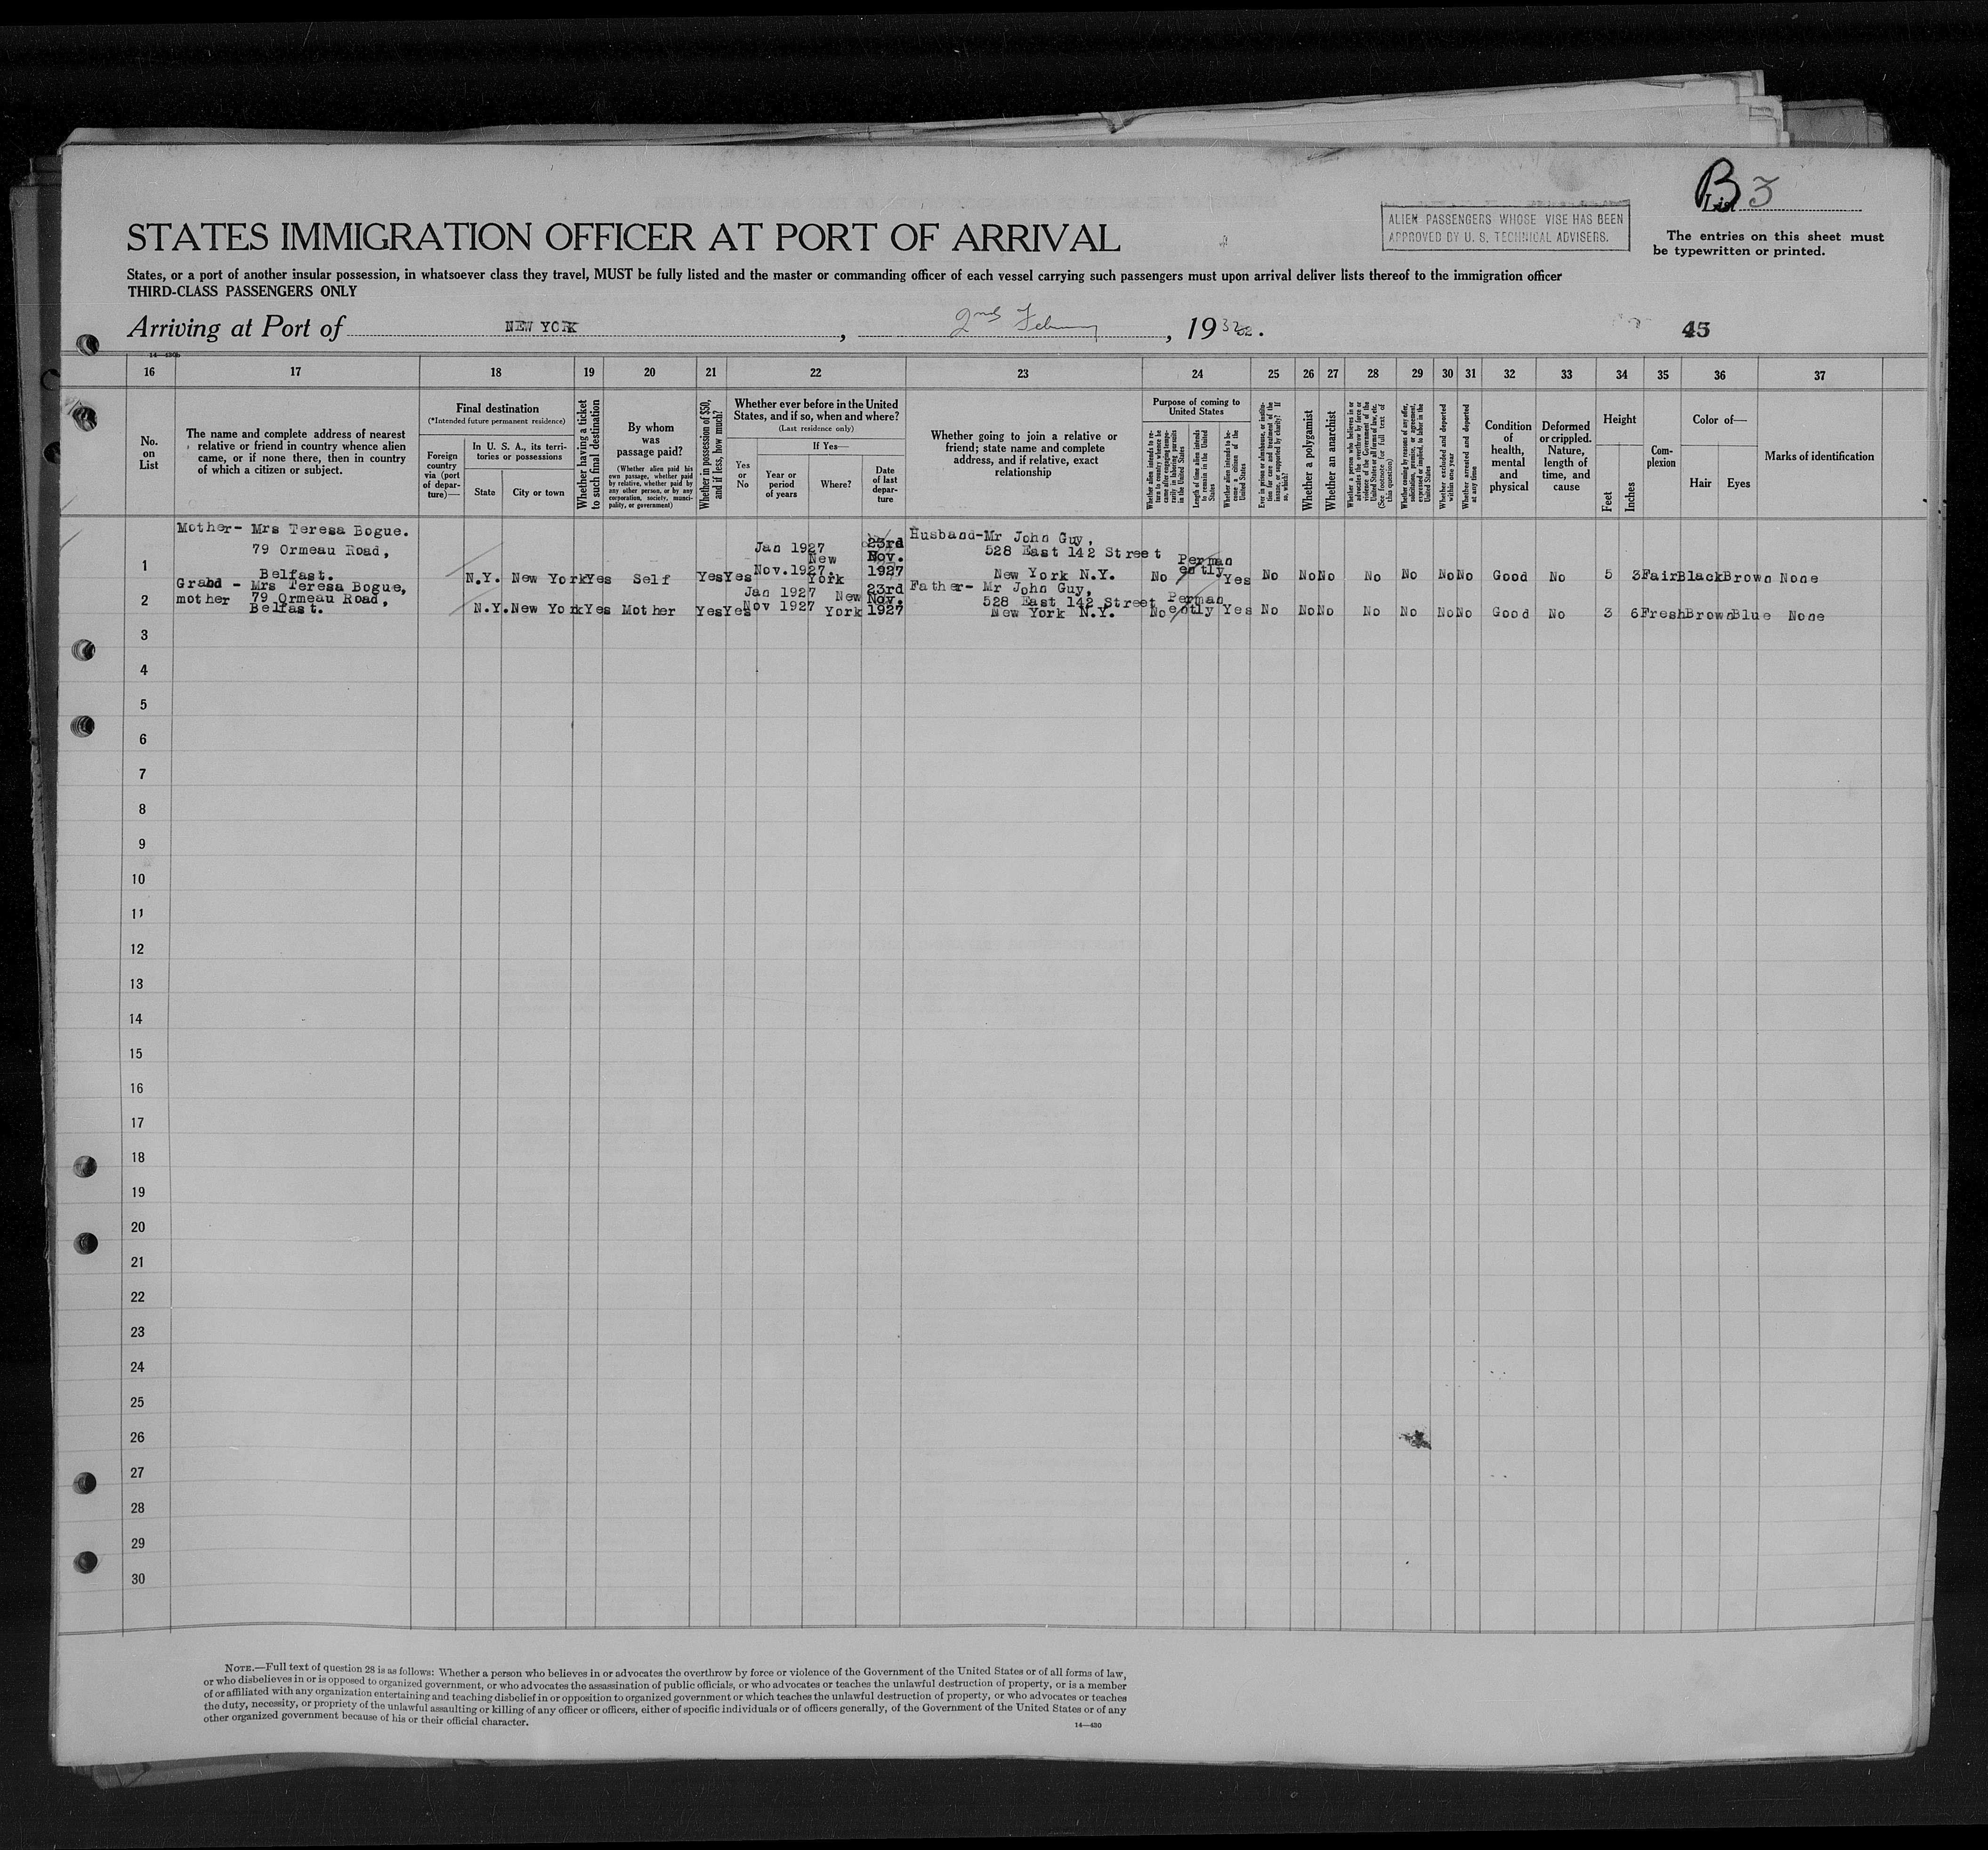 B 3
List
ALIEN PASSENGERS WHOSE VISE HAS BEEN
APPROVED BY U. S. TECHNICAL ADVISERS.
The entries on this sheet must
be typewritten or printed.
STATES IMMIGRATION OFFICER AT PORT OF ARRIVAL
States, or a port of another insular possession, in whatsoever class they travel, MUST be fully listed and the master or commanding officer of each vessel carrying such passengers must upon arrival deliver lists thereof to the immigration officer
THIRD-CLASS PASSENGERS ONLY
Arriving at Port of NEW YORK, 2nd February, 1932.
45
14—430b
16 17 18 19 20 21 22 23 24 25 26 27 28 29 30 31 32 33 34 35 36 37
No. on List
The name and complete address of nearest relative or friend in country whence alien came, or if none there, then in country of which a citizen or subject.
Final destination
(*Intended future permanent residence)
Foreign country via (port of departure)—
In U. S. A., its territories or possessions
State
City or town
Whether having a ticket to such final destination
By whom was passage paid?
(Whether alien paid his own passage, whether paid by relative, whether paid by any other person, or by any corporation, society, municipality, or government)
Whether in possession of $50, and if less, how much?
Whether ever before in the United States, and if so, when and where?
(Last residence only)
If Yes—
Yes or No
Year or period of years
Where?
Date of last departure
Whether going to join a relative or friend; state name and complete address, and if relative, exact relationship
Purpose of coming to United States
Whether alien intends to return to country whence he came after engaging temporarily in laboring pursuits in the United States
Length of time alien intends to remain in the United States
Whether alien intends to become a citizen of the United States
Ever in prison or almshouse, or institution for care and treatment of the insane, or supported by charity? If so, which?
Whether a polygamist
Whether an anarchist
Whether a person who believes in or advocates the overthrow by force or violence of the Government of the United States or all forms of law, etc. (See footnote for full text of this question)
Whether coming by reasons of any offer, solicitation, promise, or agreement, expressed or implied, to labor in the United States
Whether excluded and deported within one year
Whether arrested and deported at any time
Condition of health, mental and physical
Deformed or crippled. Nature, length of time, and cause
Height
Feet
Inches
Complexion
Color of—
Hair
Eyes
Marks of identification
1 Mother- Mrs Teresa Bogue. 79 Ormeau Road, Belfast. N.Y. New York Yes Self Yes Yes Jan 1927 Nov.1927. New York 23rd Nov. 1927 Husband-Mr John Guy, 528 East 142 Street New York N.Y. No Permanently Yes No No No No No No No Good No 5 3 Fair Black Brown None
2 Grand - mother Mrs Teresa Bogue, 79 Ormeau Road, Belfast. N.Y. New York Yes Mother Yes Yes Jan 1927 Nov 1927 New York 23rd Nov. 1927 Father- Mr John Guy, 528 East 142 Street New York N.Y. No Permanently Yes No No No No No No No Good No 3 6 Fresh Brown Blue None
3
4
5
6
7
8
9
10
11
12
13
14
15
16
17
18
19
20
21
22
23
24
25
26
27
28
29
30
NOTE.—Full text of question 28 is as follows: Whether a person who believes in or advocates the overthrow by force or violence of the Government of the United States or of all forms of law,
or who disbelieves in or is opposed to organized government, or who advocates the assassination of public officials, or who advocates or teaches the unlawful destruction of property, or is a member
of or affiliated with any organization entertaining and teaching disbelief in or opposition to organized government or which teaches the unlawful destruction of property, or who advocates or teaches
the duty, necessity, or propriety of the unlawful assaulting or killing of any officer or officers, either of specific individuals or of officers generally, of the Government of the United States or of any
other organized government because of his or their official character.
14—430